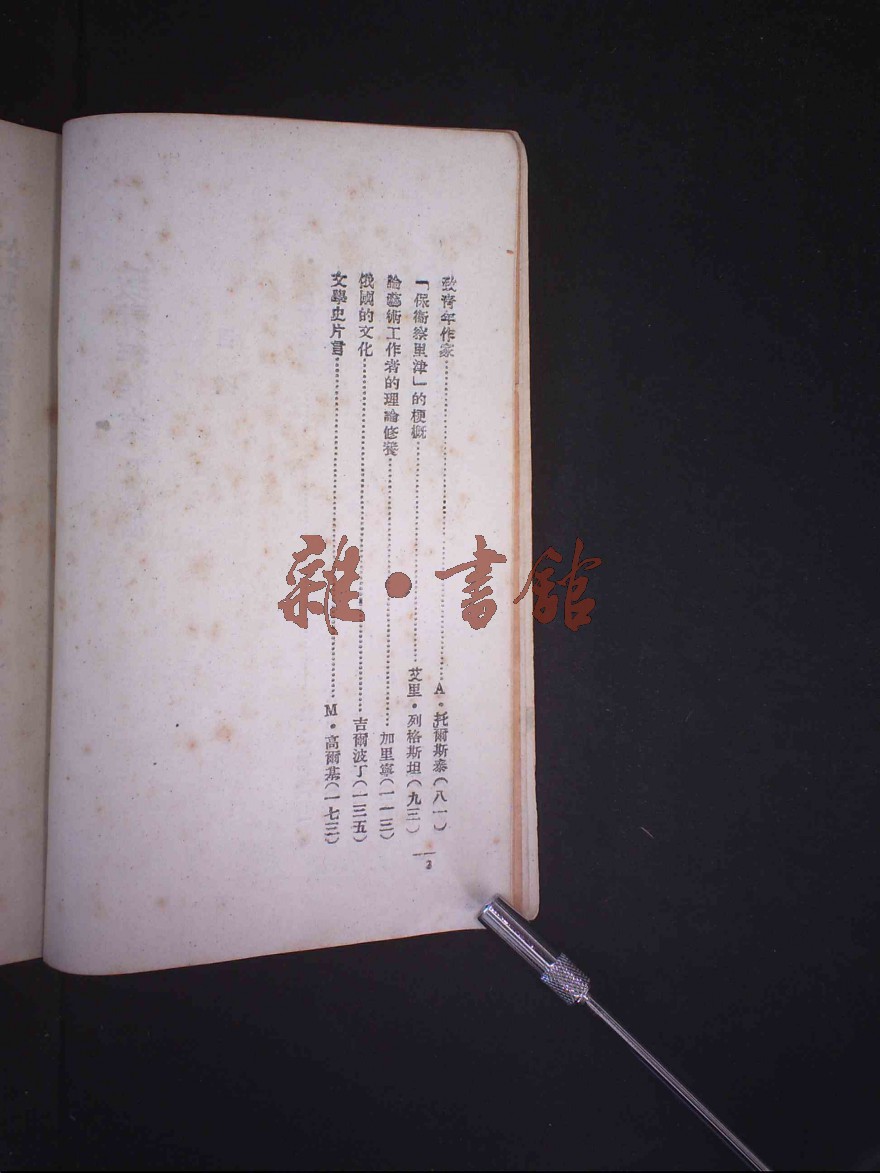 致青年作家……A·托爾斯泰(八一)
「保衞察里津」的梗概……艾里·列格斯坦(九三)
論藝術工作者的理論修養……加里寧(一一三)
俄國的文化……吉爾波丁(一三五)
文學史片言……M·高爾基(一七三)
2
雜·書館